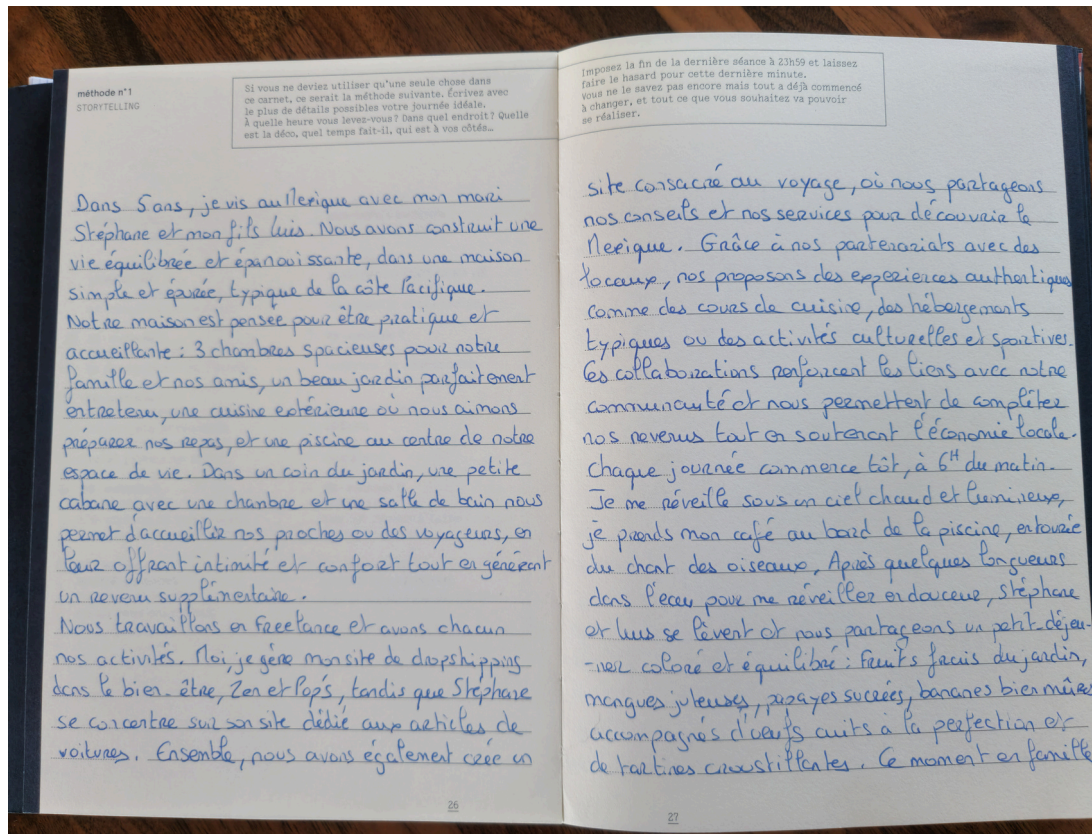 méthode n°1
STORYTELLING
Si vous ne deviez utiliser qu'une seule chose dans
ce carnet, ce serait la méthode suivante. Écrivez avec
le plus de détails possibles votre journée idéale.
À quelle heure vous levez-vous? Dans quel endroit? Quelle
est la déco, quel temps fait-il, qui est à vos côtés…
Dans 5 ans, je vis au Mexique avec mon mari
Stéphane et mon fils Luis. Nous avons construit une
vie équilibrée et épanouissante, dans une maison
simple et épurée, typique de la côte Pacifique.
Notre maison est pensée pour être pratique et
accueillante : 3 chambres spacieuses pour notre
famille et nos amis, un beau jardin parfaitement
entretenu, une cuisine extérieure où nous aimons
préparer nos repas, et une piscine au centre de notre
espace de vie. Dans un coin du jardin, une petite
cabane avec une chambre et une salle de bain nous
permet d'accueillir nos proches ou des voyageurs, en
leur offrant intimité et confort tout en générant
un revenu supplémentaire.
Nous travaillons en freelance et avons chacun
nos activités. Moi, je gère mon site de dropshipping
dans le bien-être, Zen et Pop's, tandis que Stéphane
se concentre sur son site dédié aux articles de
voitures. Ensemble, nous avons également créé un
26
Imposez la fin de la dernière séance à 23h59 et laissez
faire le hasard pour cette dernière minute.
Vous ne le savez pas encore mais tout a déjà commencé
à changer, et tout ce que vous souhaitez va pouvoir
se réaliser.
site consacré au voyage, où nous partageons
nos conseils et nos services pour découvrir le
Mexique. Grâce à nos partenariats avec des
locaux, nos proposons des expériences authentiques
comme des cours de cuisine, des hébergements
typiques ou des activités culturelles et sportives.
Ces collaborations renforcent les liens avec notre
communauté et nous permettent de compléter
nos revenus tout en soutenant l'économie locale.
Chaque journée commence tôt, à 6H du matin.
Je me réveille sous un ciel chaud et lumineux,
je prends mon café au bord de la piscine, entourée
du chant des oiseaux, Après quelques longueurs
dans l'eau pour me réveiller en douceur, Stéphane
et Luis se lèvent et nous partageons un petit-déjeu-
-ner coloré et équilibré : fruits frais du jardin,
mangues juteuses, papayes sucrées, bananes bien mûres
accompagnés d'œufs cuits à la perfection et
de tartines croustillantes. Ce moment en famille
27